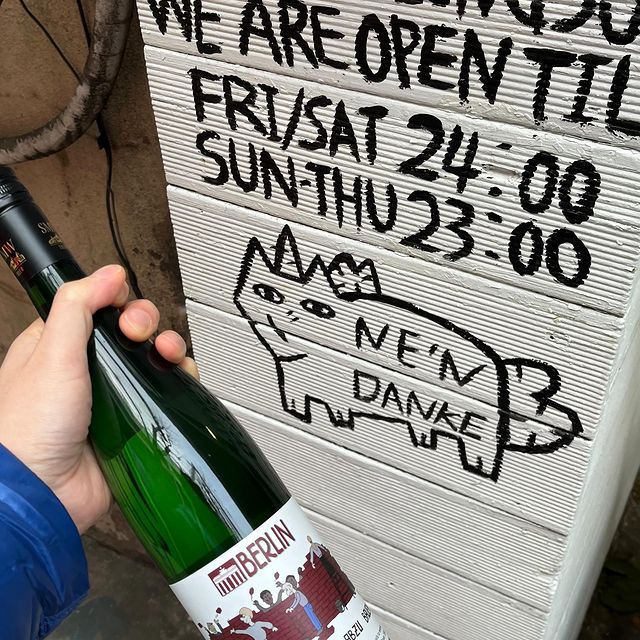 WE ARE OPEN TIL
FRI/SAT 24:00
SUN-THU 23:00
NE'N
DANKE
BERLIN